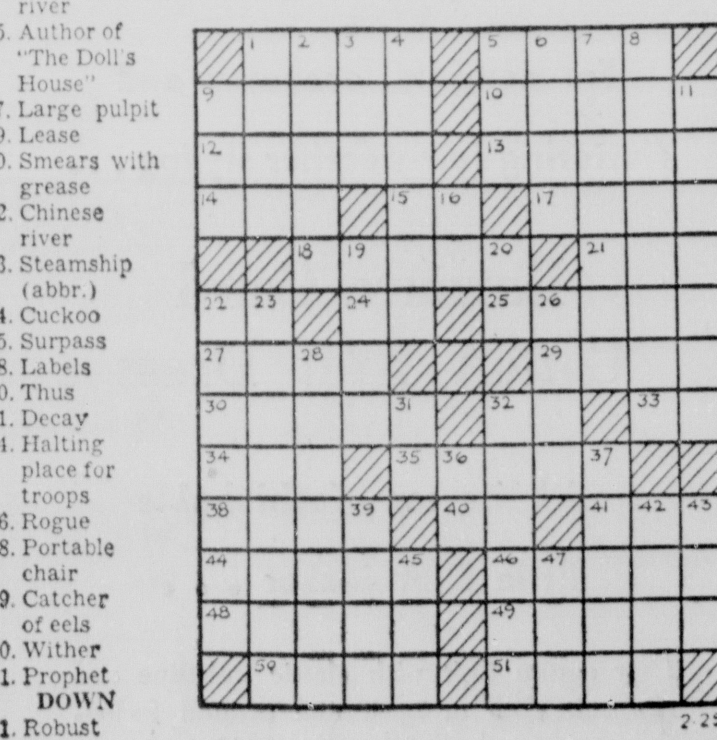 river
5. Author of
"The Doll's
House"
7. Large pulpit
9. Lease
0. Smears with
grease
2. Chinese
river
3. Steamship
(abbr.)
4. Cuckoo
5. Surpass
8. Labels
0. Thus
1. Decay
4. Halting
place for
troops
6. Rogue
8. Portable
chair
9. Catcher
of eels
0. Wither
1. Prophet
DOWN
1. Robust
1 2 3 4 5 6 7 8
9 10 11
12 13
14 15 16 17
18 19 20 21
22 23 24 25 26
27 28 29
30 31 32 33
34 35 36 37
38 39 40 41 42 43
44 45 46 47
48 49
50 51
2-25